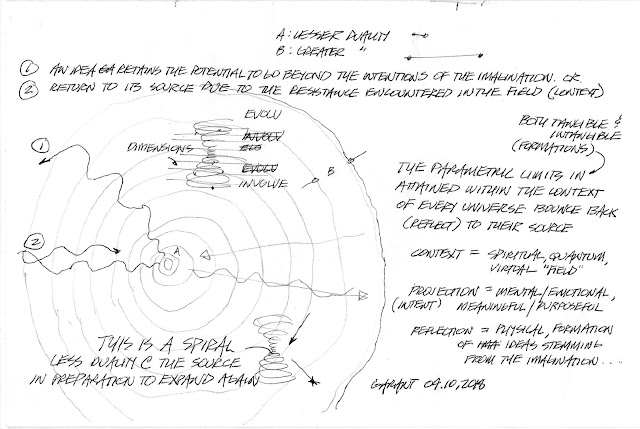 A: LESSER DUALITY
B: GREATER "
① AN IDEA RETAINS THE POTENTIAL TO GO BEYOND THE INTENTIONS OF THE IMAGINATION. OR
② RETURN TO ITS SOURCE DUE TO THE RESISTANCE ENCOUNTERED IN THE FIELD (CONTEXT)
EVOLU
INVOLU
DIMENSIONS
EVOLU
INVOLVE
BOTH TANGIBLE &
INTANGIBLE
(FORMATIONS)
①
B
THE PARAMETRIC LIMITS IN
ATTAINED WITHIN THE CONTEXT
OF EVERY UNIVERSE BOUNCE BACK
(REFLECT) TO THEIR SOURCE
②
A
CONTEXT = SPIRITUAL, QUANTUM,
VIRTUAL "FIELD"
PROJECTION = MENTAL/EMOTIONAL,
(INTENT) MEANINGFUL/PURPOSEFUL
REFLECTION = PHYSICAL, FORMATION
OF IDEAS STEMMING
FROM THE IMAGINATION...
THIS IS A SPIRAL
LESS DUALITY @ THE SOURCE
IN PREPARATION TO EXPAND AGAIN
GARANT 09.10.2018